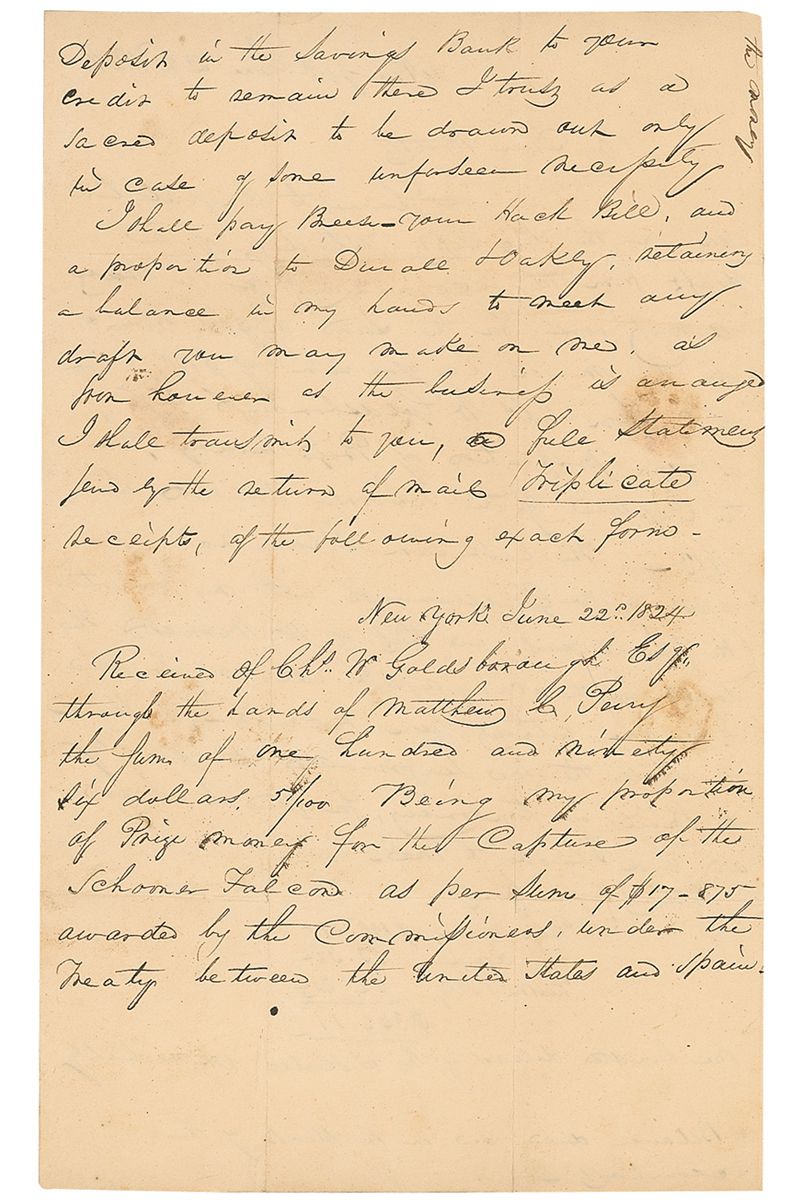 the money
Deposit in the Savings Bank to your
credit to remain there I trust as a
sacred deposit to be drawn out only
in case of some unforseen necessity
I shall pay Breese your Hack Bill, and
a proportion to Duvall & Oakley, retaining
a balance in my hands to meet any
draft you may make on me. as
soon however as the business is arranged
I shall transmit to you, a full statement
send by the return of mail Triplicate
receipts, of the following exact form -
New York June 22d. 1824
Received of Chs. W Goldsborough Esqr.
through the hands of Matthew C. Perry
the sum of one hundred and ninety
six dollars, /100 Being my proportion
of Prize money for the Capture of the
Schooner Falcon as per sum of $17-875
awarded by the Commissioners, under the
Treaty between the United States and Spain.